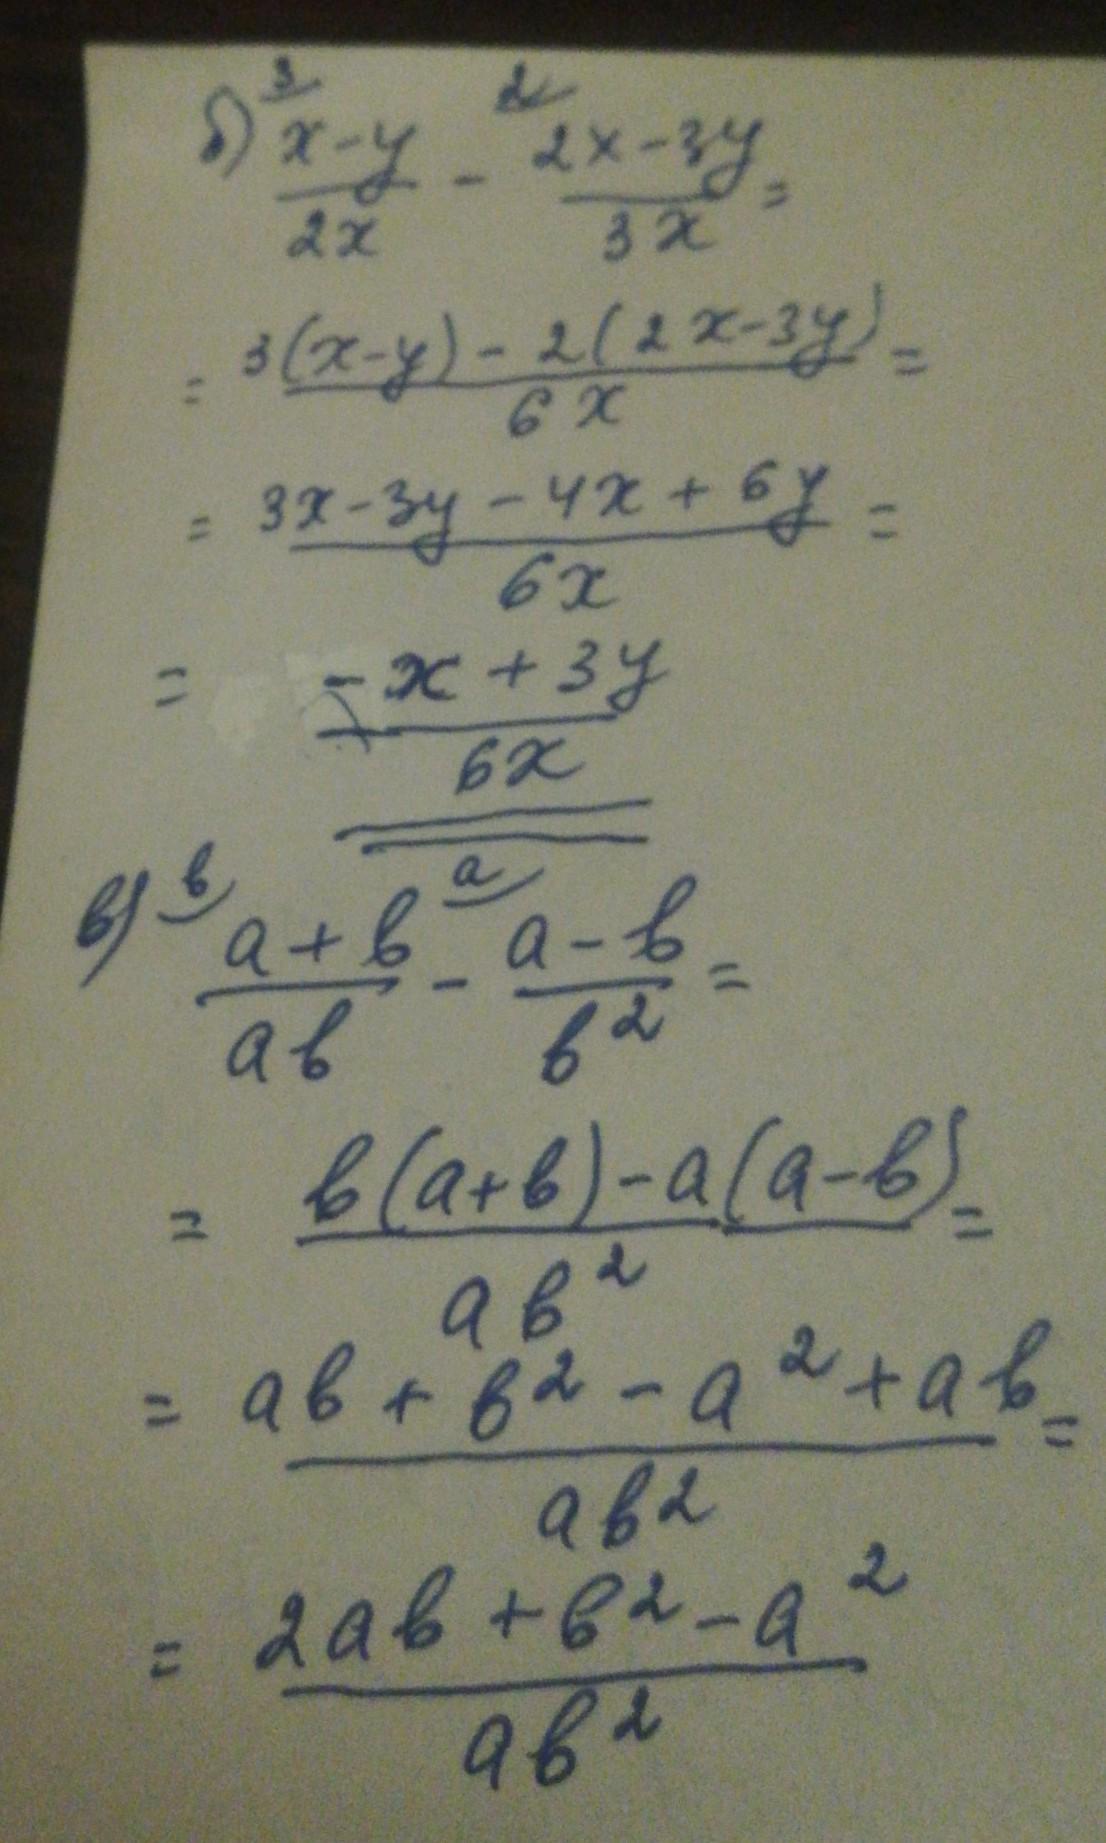 б) (x-y)/2x - (2x-3y)/3x =
= (3(x-y) - 2(2x-3y))/6x =
= (3x-3y-4x+6y)/6x =
= (-x+3y)/6x
в) (a+b)/ab - (a-b)/b² =
= (b(a+b)-a(a-b))/ab² =
= (ab+b²-a²+ab)/ab² =
= (2ab+b²-a²)/ab²